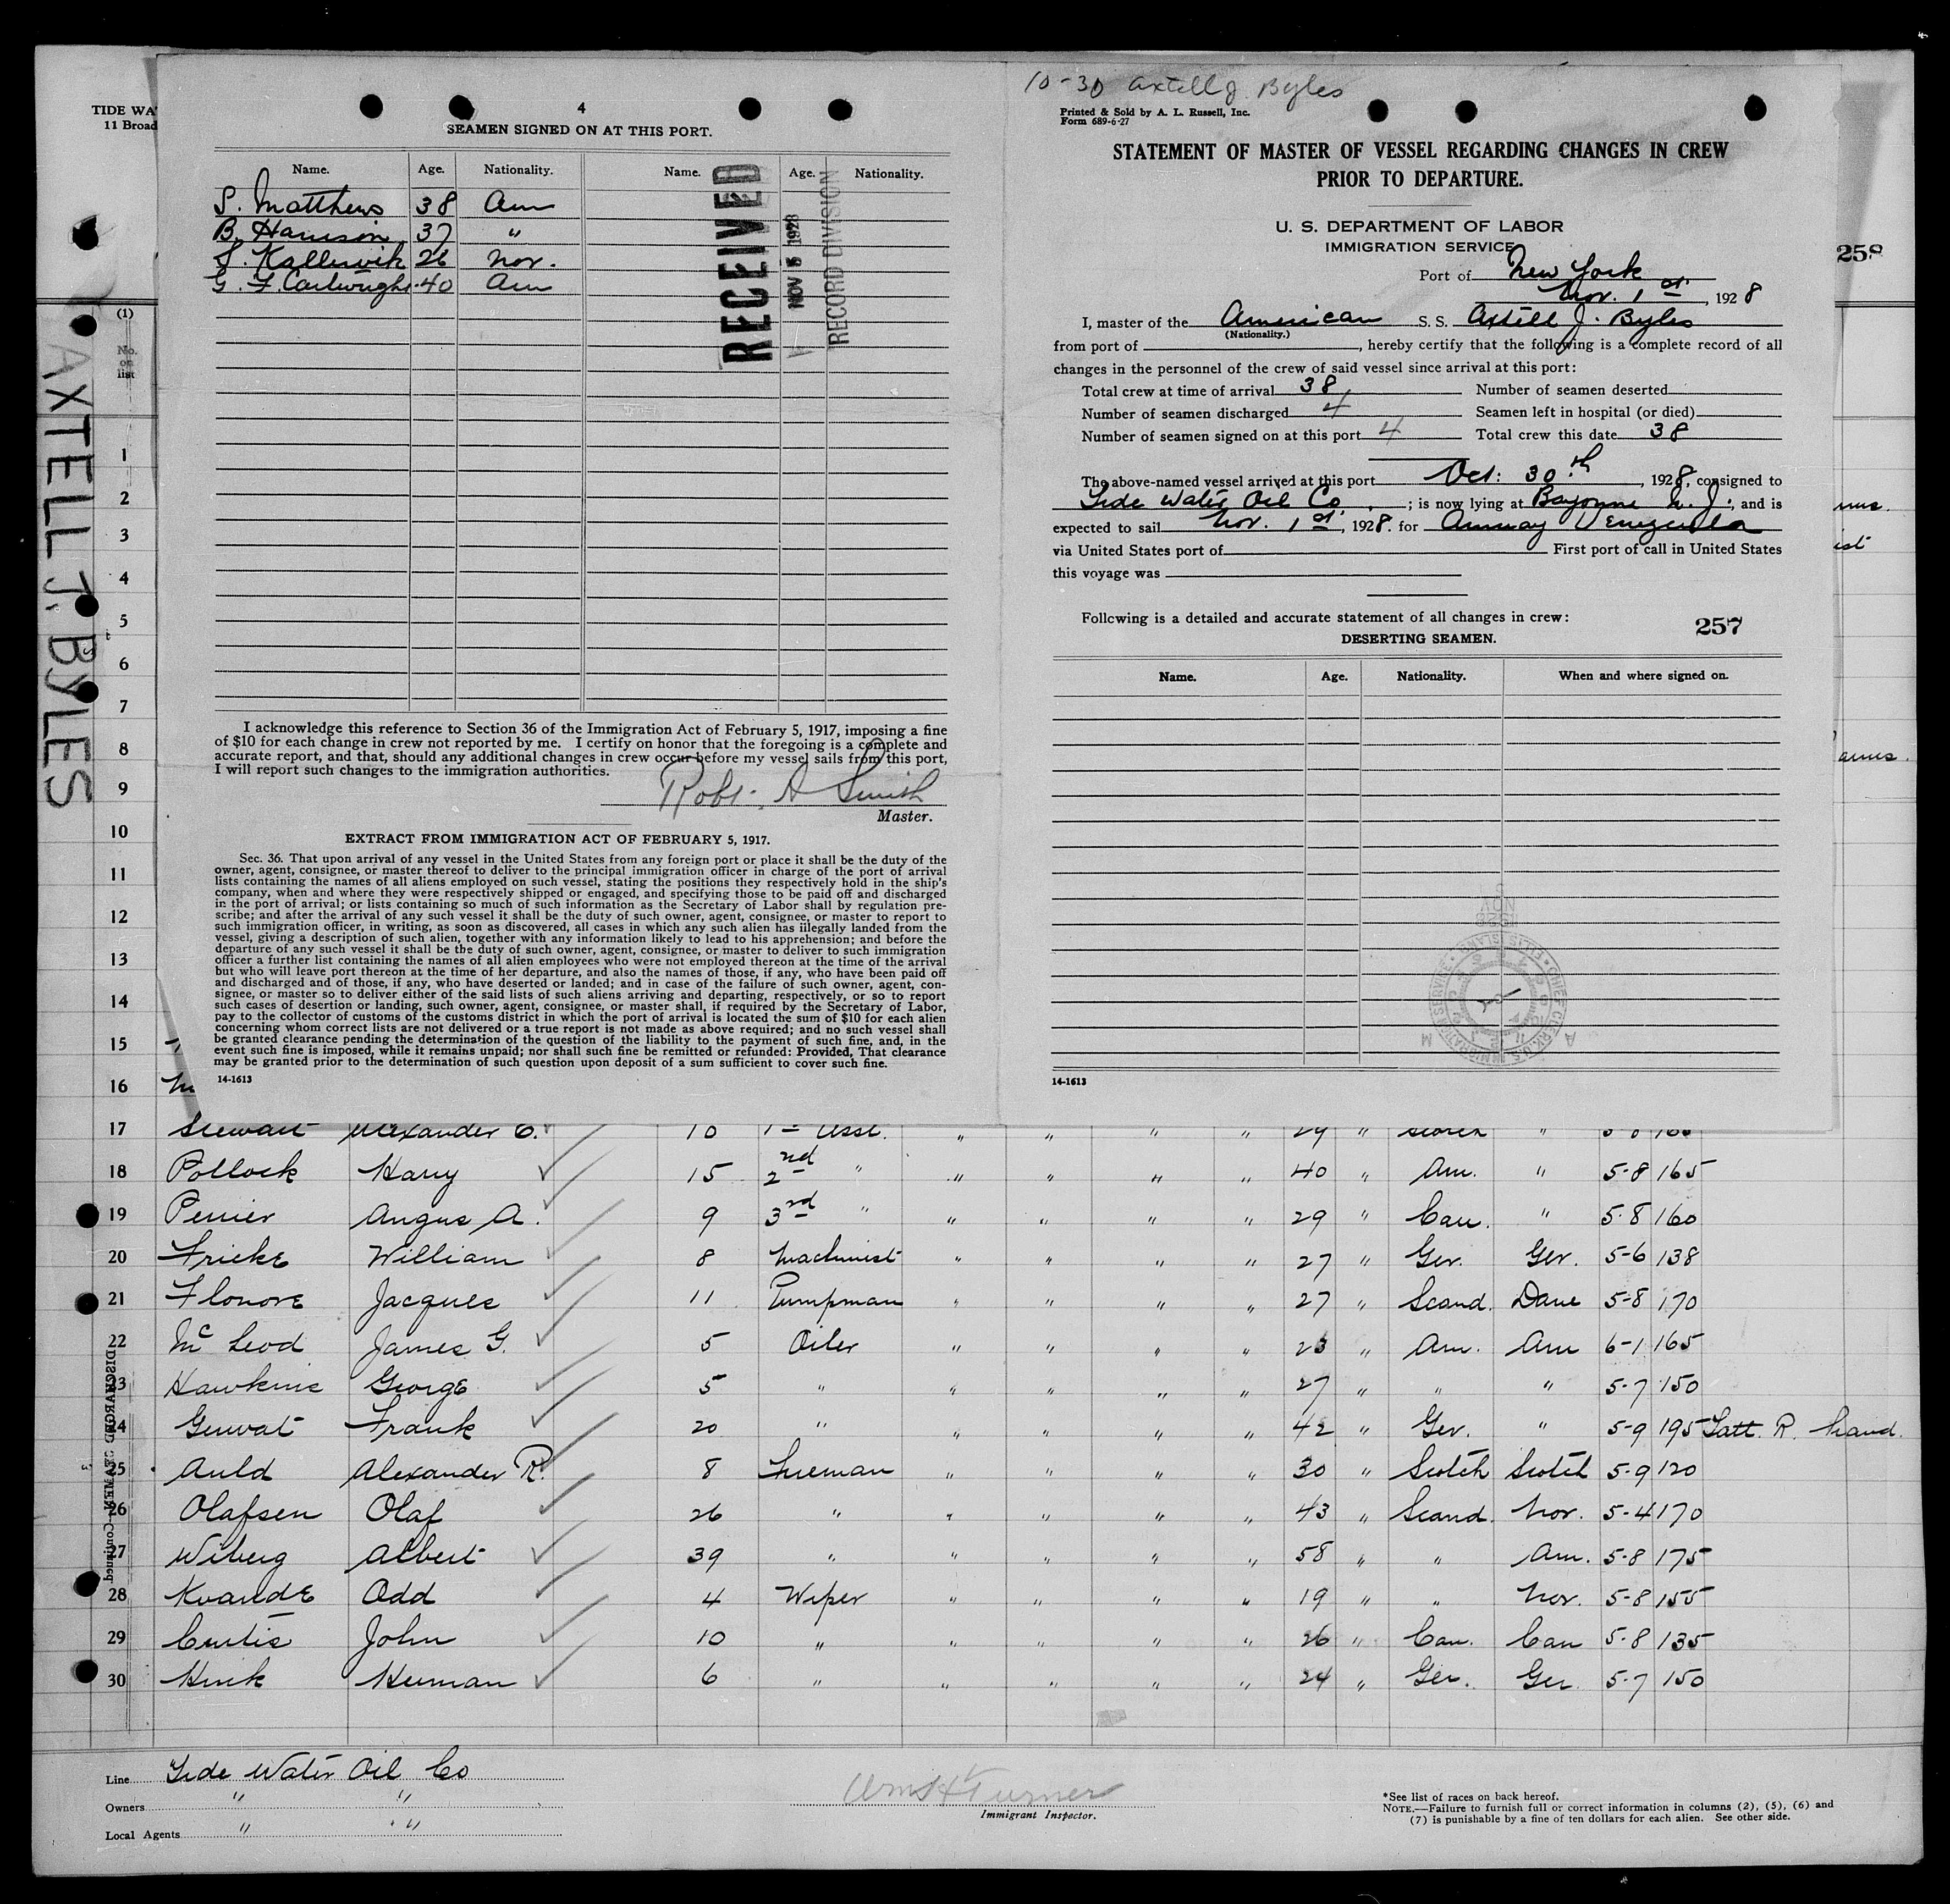 10-30 Axtell J. Byles
TIDE WA
11 Broad
4
SEAMEN SIGNED ON AT THIS PORT.
Name. Age. Nationality. Name. Age. Nationality.
S. Matthews 38 Am
B. Harrison 37 "
S. Kallewik 26 Nor.
G. F. Cartwright 40 Am
RECEIVED
NOV 5 1928
RECORD DIVISION
I acknowledge this reference to Section 36 of the Immigration Act of February 5, 1917, imposing a fine
of $10 for each change in crew not reported by me. I certify on honor that the foregoing is a complete and
accurate report, and that, should any additional changes in crew occur before my vessel sails from this port,
I will report such changes to the immigration authorities.
Robt. A Smith
Master.
EXTRACT FROM IMMIGRATION ACT OF FEBRUARY 5, 1917.
Sec. 36. That upon arrival of any vessel in the United States from any foreign port or place it shall be the duty of the
owner, agent, consignee, or master thereof to deliver to the principal immigration officer in charge of the port of arrival
lists containing the names of all aliens employed on such vessel, stating the positions they respectively hold in the ship's
company, when and where they were respectively shipped or engaged, and specifying those to be paid off and discharged
in the port of arrival; or lists containing so much of such information as the Secretary of Labor shall by regulation pre-
scribe; and after the arrival of any such vessel it shall be the duty of such owner, agent, consignee, or master to report to
such immigration officer, in writing, as soon as discovered, all cases in which any such alien has illegally landed from the
vessel, giving a description of such alien, together with any information likely to lead to his apprehension; and before the
departure of any such vessel it shall be the duty of such owner, agent, consignee, or master to deliver to such immigration
officer a further list containing the names of all alien employees who were not employed thereon at the time of the arrival
but who will leave port thereon at the time of her departure, and also the names of those, if any, who have been paid off
and discharged and of those, if any, who have deserted or landed; and in case of the failure of such owner, agent, con-
signee, or master so to deliver either of the said lists of such aliens arriving and departing, respectively, or so to report
such cases of desertion or landing, such owner, agent, consignee, or master shall, if required by the Secretary of Labor,
pay to the collector of customs of the customs district in which the port of arrival is located the sum of $10 for each alien
concerning whom correct lists are not delivered or a true report is not made as above required; and no such vessel shall
be granted clearance pending the determination of the question of the liability to the payment of such fine, and, in the
event such fine is imposed, while it remains unpaid; nor shall such fine be remitted or refunded: Provided, That clearance
may be granted prior to the determination of such question upon deposit of a sum sufficient to cover such fine.
14-1613
Printed & Sold by A. L. Russell, Inc.
Form 689-6-27
STATEMENT OF MASTER OF VESSEL REGARDING CHANGES IN CREW
PRIOR TO DEPARTURE.
U. S. DEPARTMENT OF LABOR
IMMIGRATION SERVICE
Port of New York
Nov. 1st, 1928
I, master of the American S. S. Axtell J. Byles
(Nationality.)
from port of , hereby certify that the following is a complete record of all
changes in the personnel of the crew of said vessel since arrival at this port:
Total crew at time of arrival 38 Number of seamen deserted
Number of seamen discharged 4 Seamen left in hospital (or died)
Number of seamen signed on at this port 4 Total crew this date 38
The above-named vessel arrived at this port Oct: 30th, 1928, consigned to
Tide Water Oil Co. ; is now lying at Bayonne N. J.; and is
expected to sail Nov. 1st, 1928. for Amuay Venezuela
via United States port of First port of call in United States
this voyage was
Following is a detailed and accurate statement of all changes in crew:
257
DESERTING SEAMEN.
Name. Age. Nationality. When and where signed on.
14-1613
258
AXTELL J. BYLES
(1)
No.
on
list
1
2
3
4
5
6
7
8
9
10
11
12
13
14
15
16
17 Stewart Alexander C. 10 1st Asst. " " " " 29 " Scotch "
18 Pollock Harry 15 2nd " " " " " 40 " Am. " 5-8 165
19 Perrier Angus A. 9 3rd " " " " " 29 " Can. " 5-8 160
20 Fricke William 8 Machinist " " " " 27 " Ger. Ger. 5-6 138
21 Flonore Jacques 11 Pumpman " " " " 27 " Scand. Dane 5-8 170
22 Mc Leod James G. 5 Oiler " " " " 23 " Am. Am 6-1 165
23 Hawkins George 5 " " " " " 27 " " " 5-7 150
24 Gerwat Frank 20 " " " " " 42 " Ger. " 5-9 195 Tatt. R. hand.
25 Auld Alexander R. 8 Fireman " " " " 30 " Scotch Scotch 5-9 120
26 Olafsen Olaf 26 " " " " " 43 " Scand. Nor. 5-4 170
27 Wiberg Albert 39 " " " " " 58 " " Am. 5-8 175
28 Kvande Odd 4 Wiper " " " " 19 " " Nor. 5-8 155
29 Curtis John 10 " " " " " 26 " Can. Can 5-8 135
30 Hink Herman 6 " " " " " 24 " Ger. Ger 5-7 150
DISCHARGED SEAMEN—Continued
Line Tide Water Oil Co
Owners " "
Local Agents " "
Wm H Turner
Immigrant Inspector.
*See list of races on back hereof.
NOTE.—Failure to furnish full or correct information in columns (2), (5), (6) and
(7) is punishable by a fine of ten dollars for each alien. See other side.